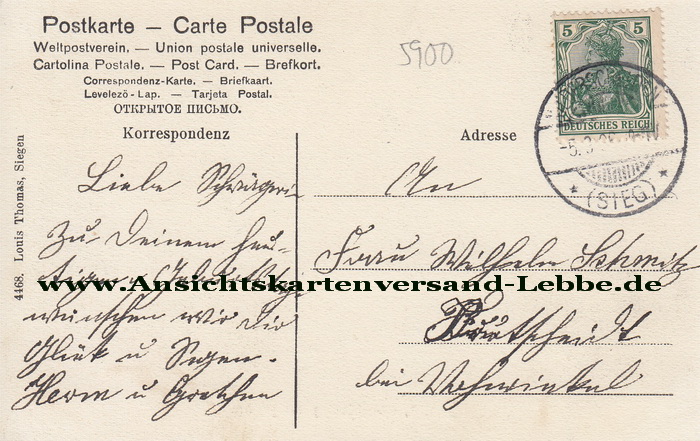 Postkarte — Carte Postale
Weltpostverein. — Union postale universelle.
Cartolina Postale. — Post Card. — Brefkort.
Correspondenz-Karte. — Briefkaart.
Levelező-Lap. — Tarjeta Postal.
ОТКРЫТОЕ ПИСЬМО.
5900
5 5
DEUTSCHES REICH
(SIEG)
Korrespondenz
Adresse
4468. Louis Thomas, Siegen
Liebe Schwägerin
Zu Deinem heu-
tigen Geburtstage
wünschen wir Dir
Glück u Segen.
Herm u Grethen
An
Frau Wilhelm Schmitz
bei Vohwinkel
www.Ansichtskartenversand-Lebbe.de